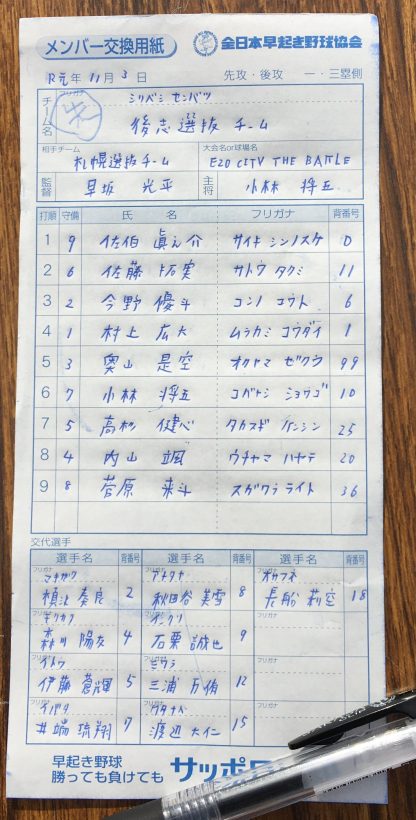 メンバー交換用紙 全日本早起き野球協会
R元年 11月 3日 先攻・後攻 一・三塁側
チーム名 フリガナ シリベシ センバツ
後志選抜 チーム
相手チーム 札幌選抜チーム 大会名or球場名 EZO CITY THE BATTLE
監督 早坂 光平 主将 小林 将五
打順 守備 氏 名 フリガナ 背番号
1 9 佐伯 眞之介 サイキ シンノスケ 0
2 6 佐藤 拓実 サトウ タクミ 11
3 2 今野 優斗 コンノ ユウト 6
4 1 村上 広大 ムラカミ コウダイ 1
5 3 奥山 是空 オクヤマ ゼクウ 99
6 7 小林 将五 コバヤシ ショウゴ 10
7 5 高杉 健心 タカスギ ケンシン 25
8 4 内山 颯 ウチヤマ ハヤテ 20
9 8 菅原 来斗 スガワラ ライト 36
交代選手
選手名 背番号 選手名 背番号 選手名 背番号
フリガナ フリガナ フリガナ オサフネ
奏良 2 秋田谷 美雪 8 長船 莉空 18
フリガナ モリカワ フリガナ イシクリ フリガナ
森川 陽友 4 石栗 誠也 9
フリガナ イトウ フリガナ ミウラ フリガナ
伊藤 蒼輝 5 三浦 12
フリガナ イバタ フリガナ ワタナベ フリガナ
井端 琉翔 7 渡辺 大仁 15
早起き野球
勝っても負けても サッポロ